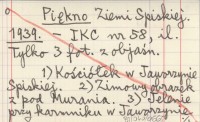 Piękno Ziemi Spiskiej.
1939. – IKC nr 58, il.
Tylko 3 fot. z objaśn.
1) Kościółek w Jaworzynie
Spiskiej. 2) Zimowy obrazek
z pod Murania. 3) Jelenie
przy karmniku w Jaworzynie